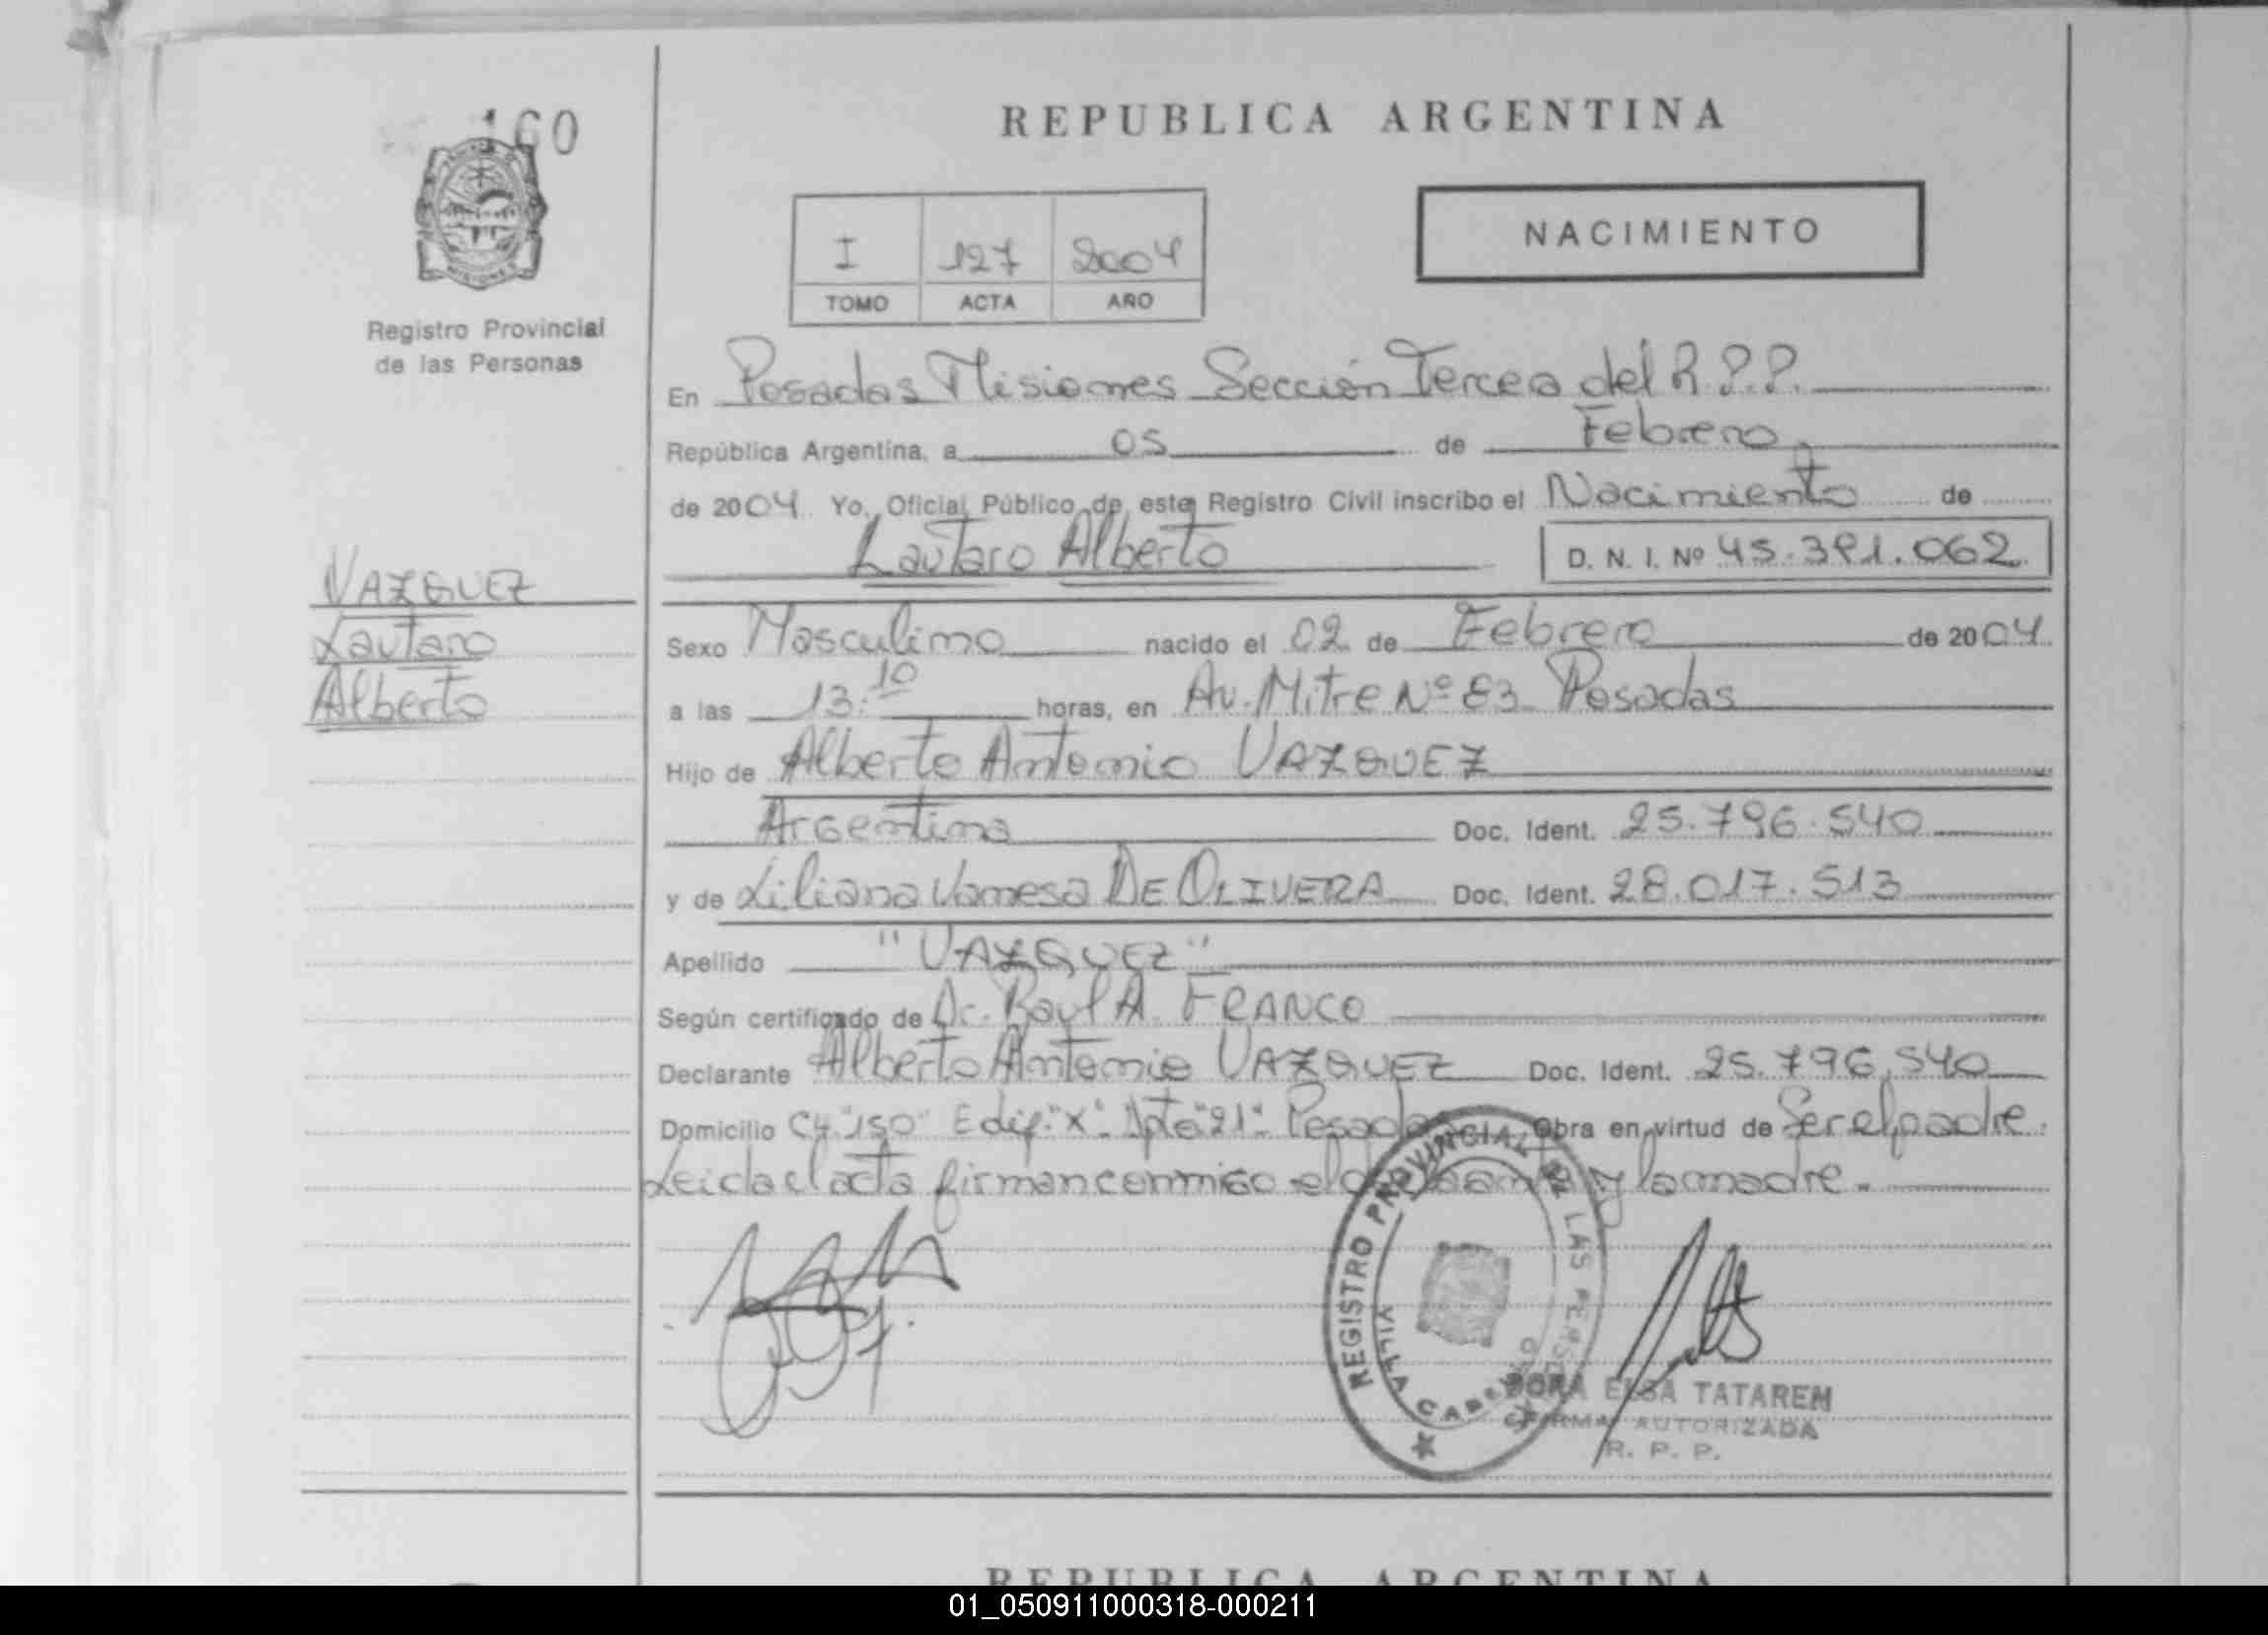 160
REPUBLICA ARGENTINA
NACIMIENTO
I 127 2004
TOMO ACTA AÑO
Registro Provincial
de las Personas
En Posadas Misiones Sección Tercera del R.P.P.
República Argentina, a 05 de Febrero
de 2004 Yo, Oficial Público de este Registro Civil inscribo el Nacimiento de
Lautaro Alberto D. N. I. Nº 45.391.062
VAZQUEZ
Lautaro
Alberto
Sexo Masculino nacido el 02 de Febrero de 2004
a las 13:10 horas, en Av. Mitre Nº 83 Posadas
Hijo de Alberto Antonio VAZQUEZ
Argentina Doc. Ident. 25.796.540
y de Liliana Vanesa DE OLIVERA Doc. Ident. 28.017.513
Apellido "VAZQUEZ"
Según certificado de Dr. Raul A. FRANCO
Declarante Alberto Antonio VAZQUEZ Doc. Ident. 25.796.540
Domicilio CH. "150" Edif. "X" Dpto "21" Posadas Obra en virtud de Ser el padre.
Leida el acta firman conmigo el declarante y la madre.
REGISTRO PROVINCIAL DE LAS PERSONAS
VILLA CABELLO
DORA ELSA TATAREM
FIRMA AUTORIZADA
R. P. P.
REPUBLICA ARGENTINA
01_050911000318-000211